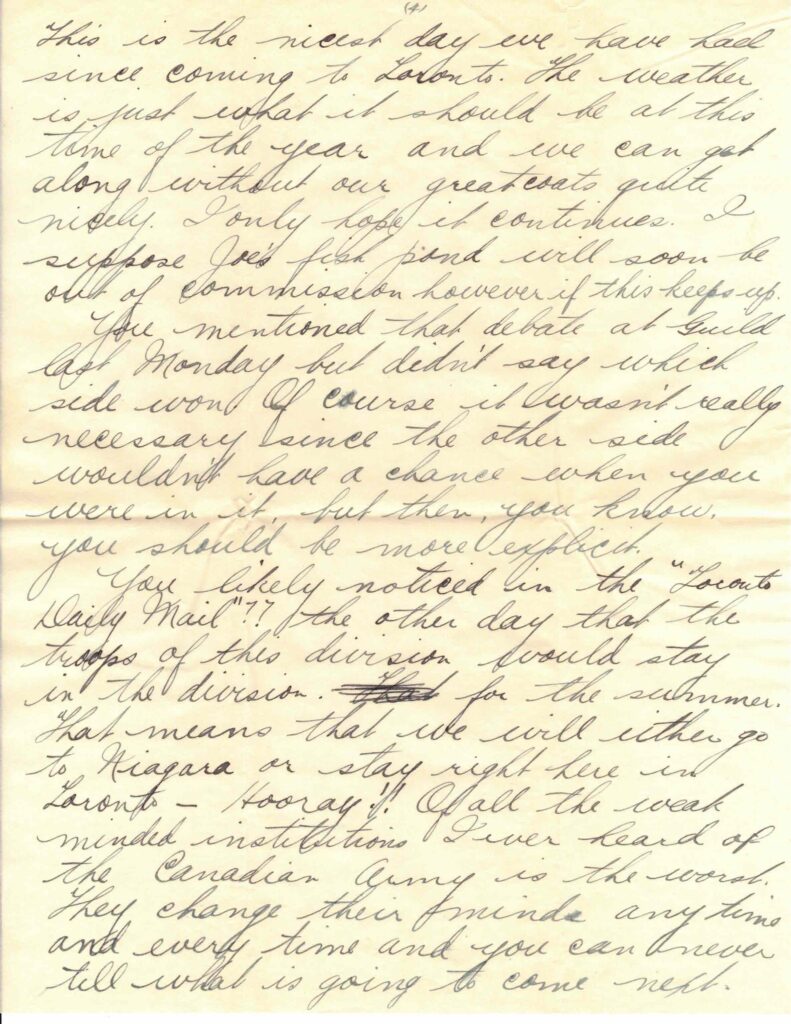 (4)
This is the nicest day we have had
since coming to Toronto. The weather
is just what it should be at this
time of the year and we can get
along without our greatcoats quite
nicely. I only hope it continues. I
suppose Joe's fish pond will soon be
out of commission however if this keeps up.
You mentioned that debate at Guild
last Monday but didn't say which
side won. Of course it wasn't really
necessary since the other side
wouldn't have a chance when you
were in it, but then, you know,
you should be more explicit.
You likely noticed in the "Toronto
Daily Mail"?? the other day that the
troops of this division would stay
in the division. That for the summer.
That means that we will either go
to Niagara or stay right here in
Toronto – Hooray!! Of all the weak
minded institutions I ever heard of
the Canadian Army is the worst.
They change their minds any time
and every time and you can never
tell what is going to come next.